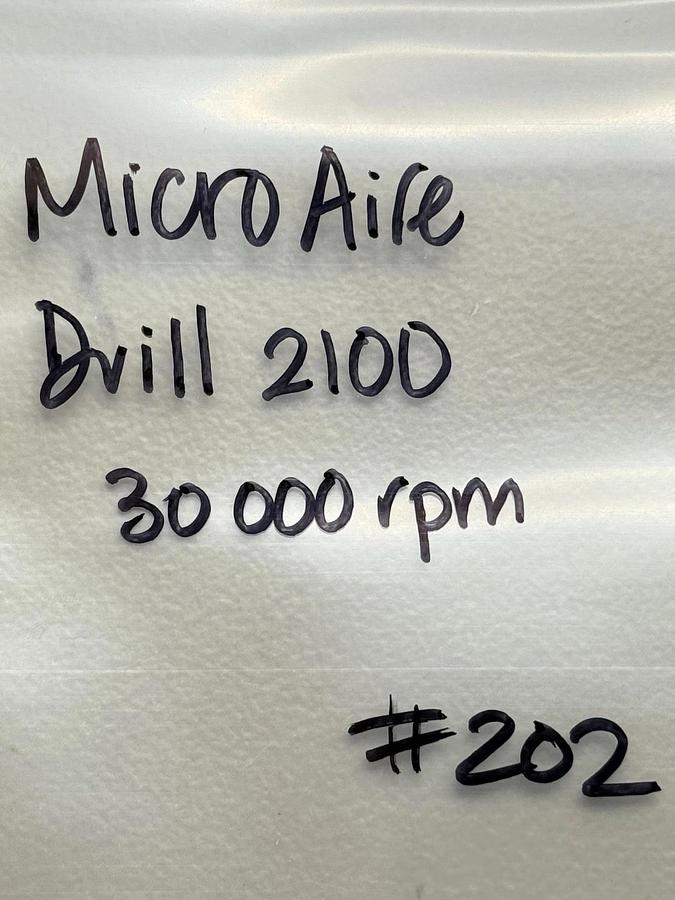 Micro Aire
Drill 2100
30 000 rpm
#202